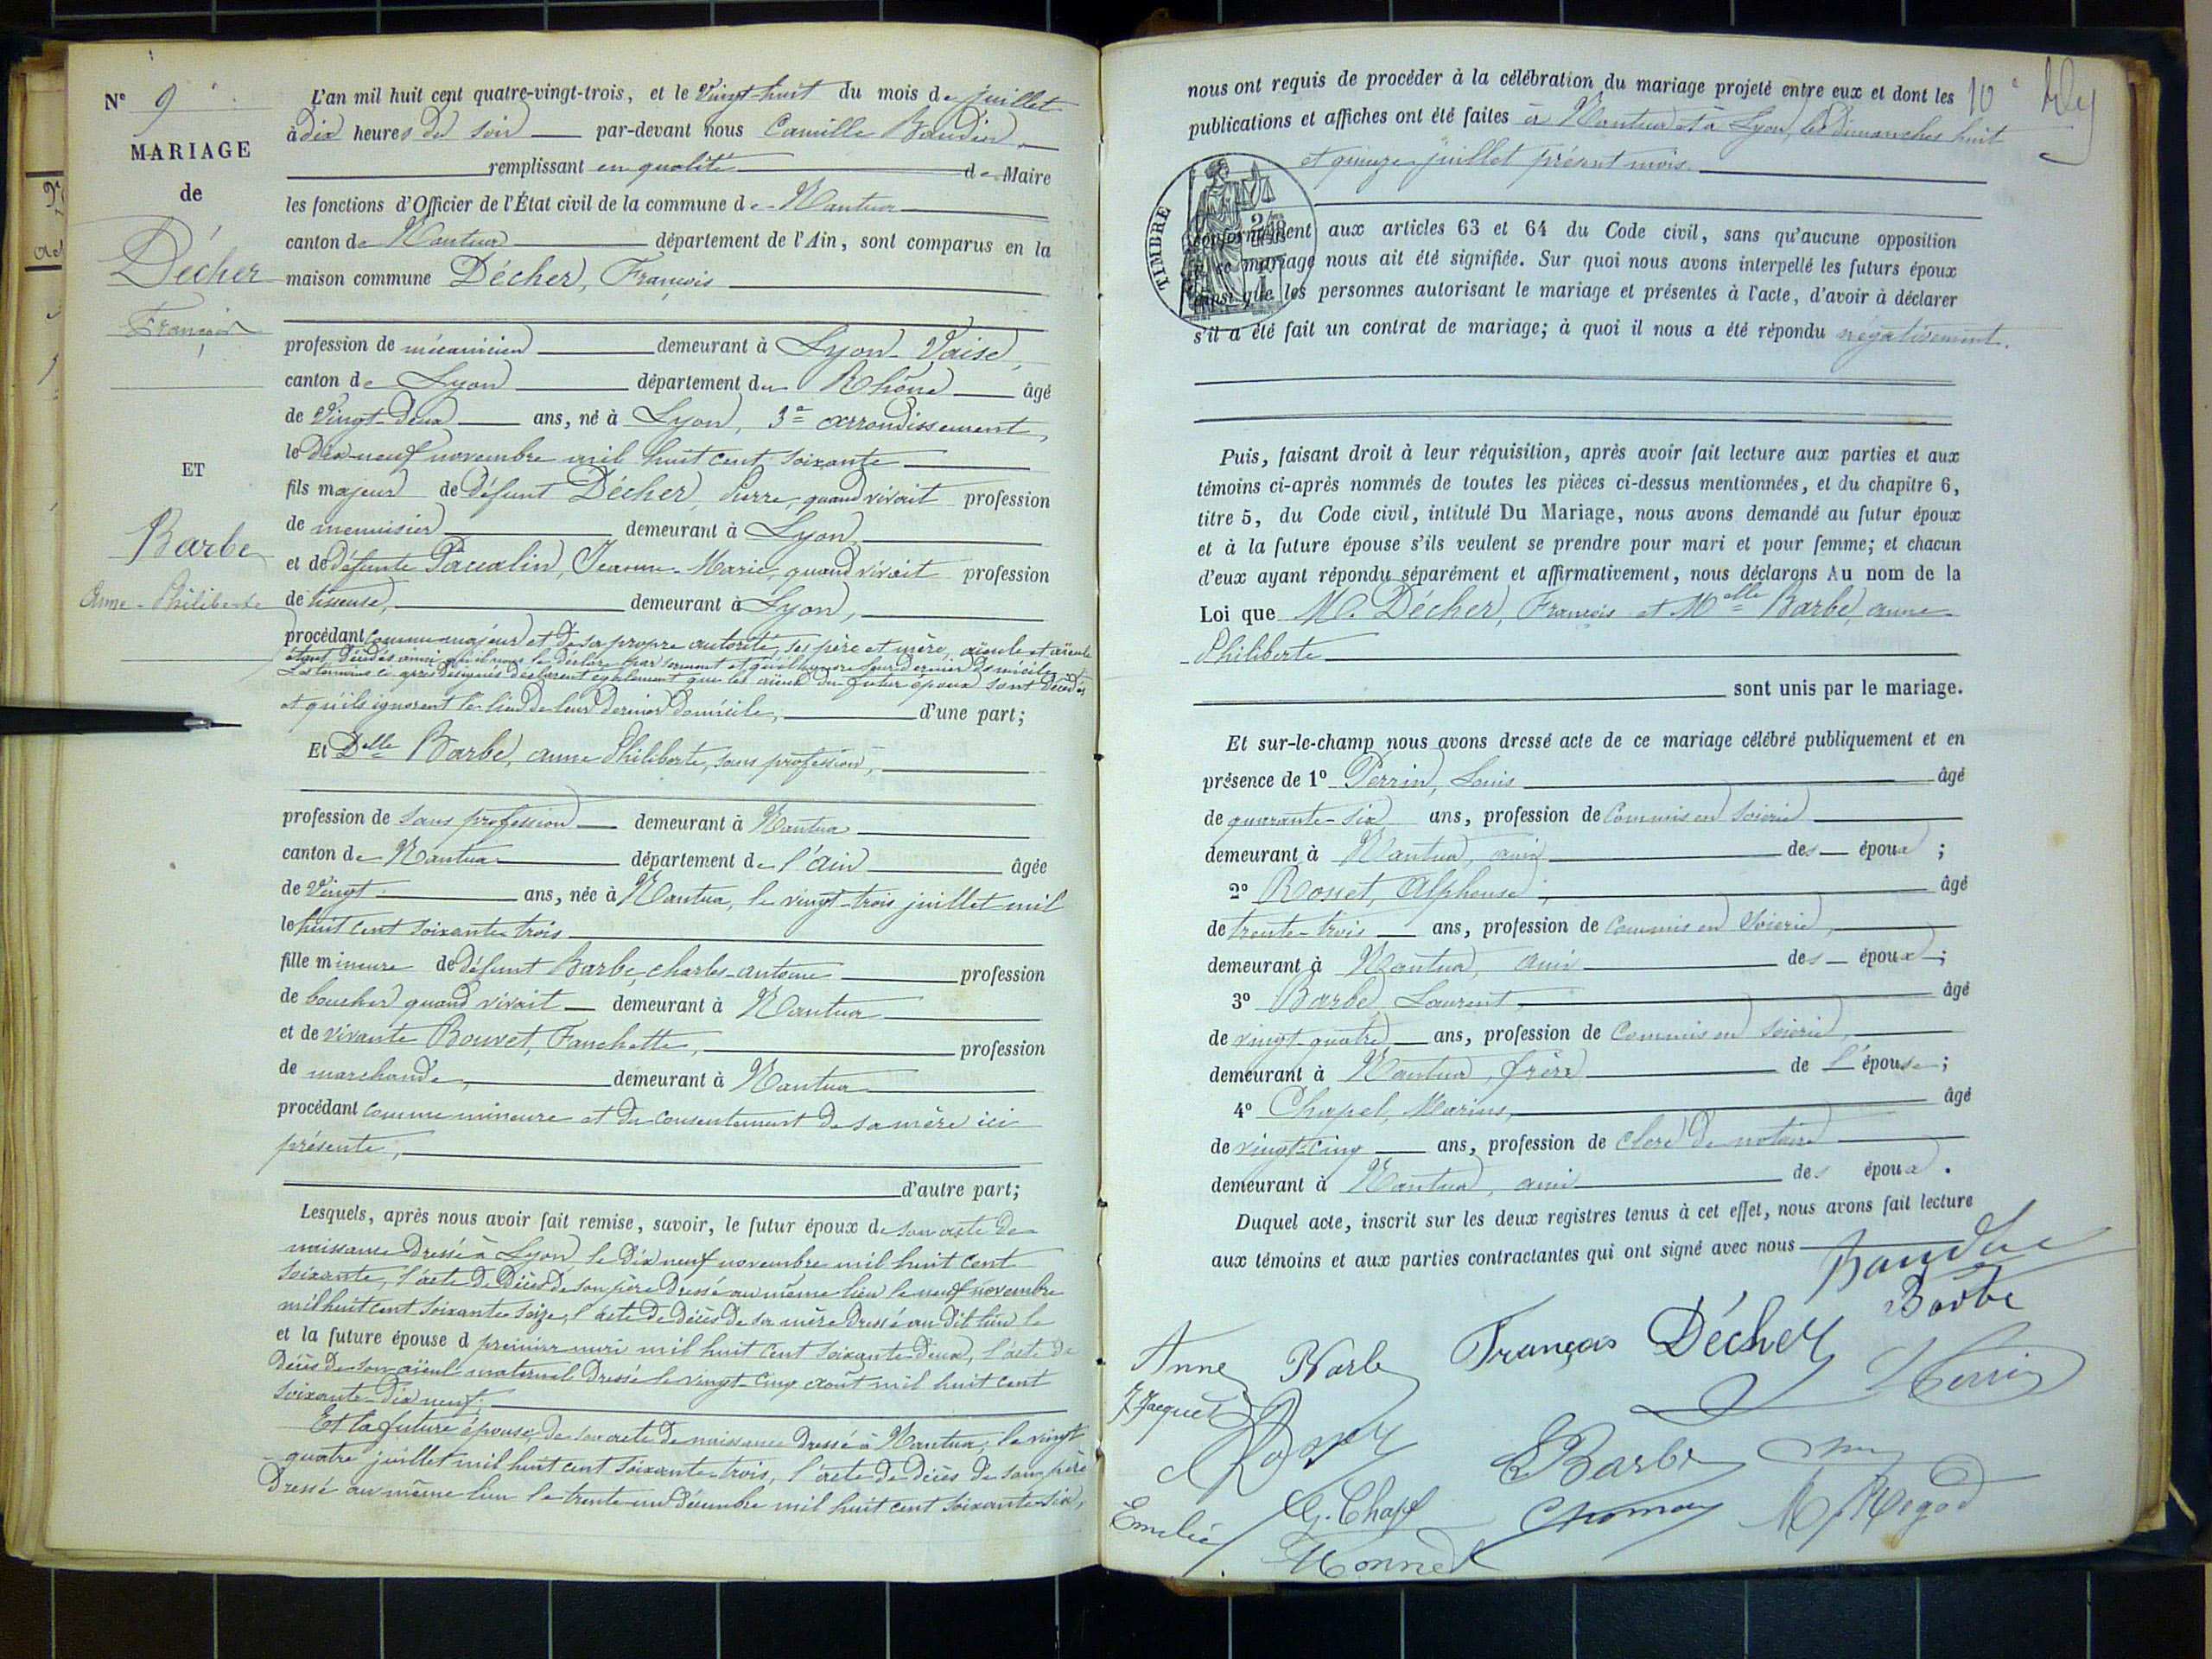 N° 9
MARIAGE
de
Décher
François
ET
Barbe
Anne-Philiberte
L'an mil huit cent quatre-vingt-trois, et le Vingt-huit du mois de juillet
à dix heures du soir par-devant nous Camille Baudin
remplissant en qualité de Maire
les fonctions d'Officier de l'État civil de la commune de Nantua
canton de Nantua département de l'Ain, sont comparus en la
maison commune Décher, François
profession de mécanicien demeurant à Lyon-Vaise,
canton de Lyon département du Rhône âgé
de Vingt-deux ans, né à Lyon, 3e arrondissement,
le dix-neuf novembre mil huit cent soixante
fils majeur de défunt Décher, Pierre, quand vivait profession
de menuisier demeurant à Lyon,
et de défunte Pacalin, Jeanne-Marie, quand vivait profession
de tisseuse, demeurant à Lyon,
procédant comme majeur et de sa propre autorité, ses père et mère, aïeuls et aïeules
étant décédés ainsi qu'il nous le déclare par serment et qu'il ignore leur dernier domicile
Les témoins ci-après désignés déclarent également que les aïeuls du futur époux sont décédés
et qu'ils ignorent le lieu de leur dernier domicile, d'une part;
Et Delle Barbe, anne Philiberte, sans profession,
profession de sans profession demeurant à Nantua
canton de Nantua département de l'ain âgée
de Vingt ans, née à Nantua, le vingt-trois juillet mil
le huit cent soixante trois
fille mineure de défunt Barbe, charles-antoine profession
de boucher quand vivait demeurant à Nantua
et de vivante Bouvet, Fanchette, profession
de marchande, demeurant à Nantua
procédant comme mineure et du consentement de sa mère ici
présente,
d'autre part;
Lesquels, après nous avoir fait remise, savoir, le futur époux de son acte de
naissance dressé à Lyon, le dix neuf novembre mil huit cent
soixante, l'acte de décès de son père dressé au même lieu le neuf novembre
mil huit cent soixante seize, l'acte de décès de sa mère dressé au dit lieu le
et la future épouse d premier mai mil huit cent soixante-deux, l'acte de
décès de son aïeul maternel dressé le vingt-cinq août mil huit cent
soixante-dix neuf;
Et la future épouse, de son acte de naissance dressé à Nantua, le vingt
quatre juillet mil huit cent soixante-trois, l'acte de décès de son père
dressé au même lieu le trente-un décembre mil huit cent soixante-six,
nous ont requis de procéder à la célébration du mariage projeté entre eux et dont les 10e
publications et affiches ont été faites à Nantua et à Lyon, les dimanches huit
et quinze juillet présent mois
TIMBRE
conformément aux articles 63 et 64 du Code civil, sans qu'aucune opposition
à ce mariage nous ait été signifiée. Sur quoi nous avons interpellé les futurs époux
ainsi que les personnes autorisant le mariage et présentes à l'acte, d'avoir à déclarer
s'il a été fait un contrat de mariage; à quoi il nous a été répondu négativement.
Puis, faisant droit à leur réquisition, après avoir fait lecture aux parties et aux
témoins ci-après nommés de toutes les pièces ci-dessus mentionnées, et du chapitre 6,
titre 5, du Code civil, intitulé Du Mariage, nous avons demandé au futur époux
et à la future épouse s'ils veulent se prendre pour mari et pour femme; et chacun
d'eux ayant répondu séparément et affirmativement, nous déclarons Au nom de la
Loi que M. Décher, François et Melle Barbe, anne
Philiberte
sont unis par le mariage.
Et sur-le-champ nous avons dressé acte de ce mariage célébré publiquement et en
présence de 1° Perrin, Louis âgé
de quarante-six ans, profession de Commis en soierie
demeurant à Nantua, ami des époux;
2° Rosset, Alphonse, âgé
de trente-trois ans, profession de Commis en soierie,
demeurant à Nantua, ami des époux;
3° Barbe, Laurent, âgé
de vingt-quatre ans, profession de Commis en soierie,
demeurant à Nantua, frère de l'épouse;
4° Chapel, Marius, âgé
de vingt-cinq ans, profession de clerc de notaire
demeurant à Nantua, ami des époux.
Duquel acte, inscrit sur les deux registres tenus à cet effet, nous avons fait lecture
aux témoins et aux parties contractantes qui ont signé avec nous
Baudin
Barbe
Anne Barbe François Décher Perrin
J Jacquet
L Barbe
G. Chapel
Emelie
Monnet